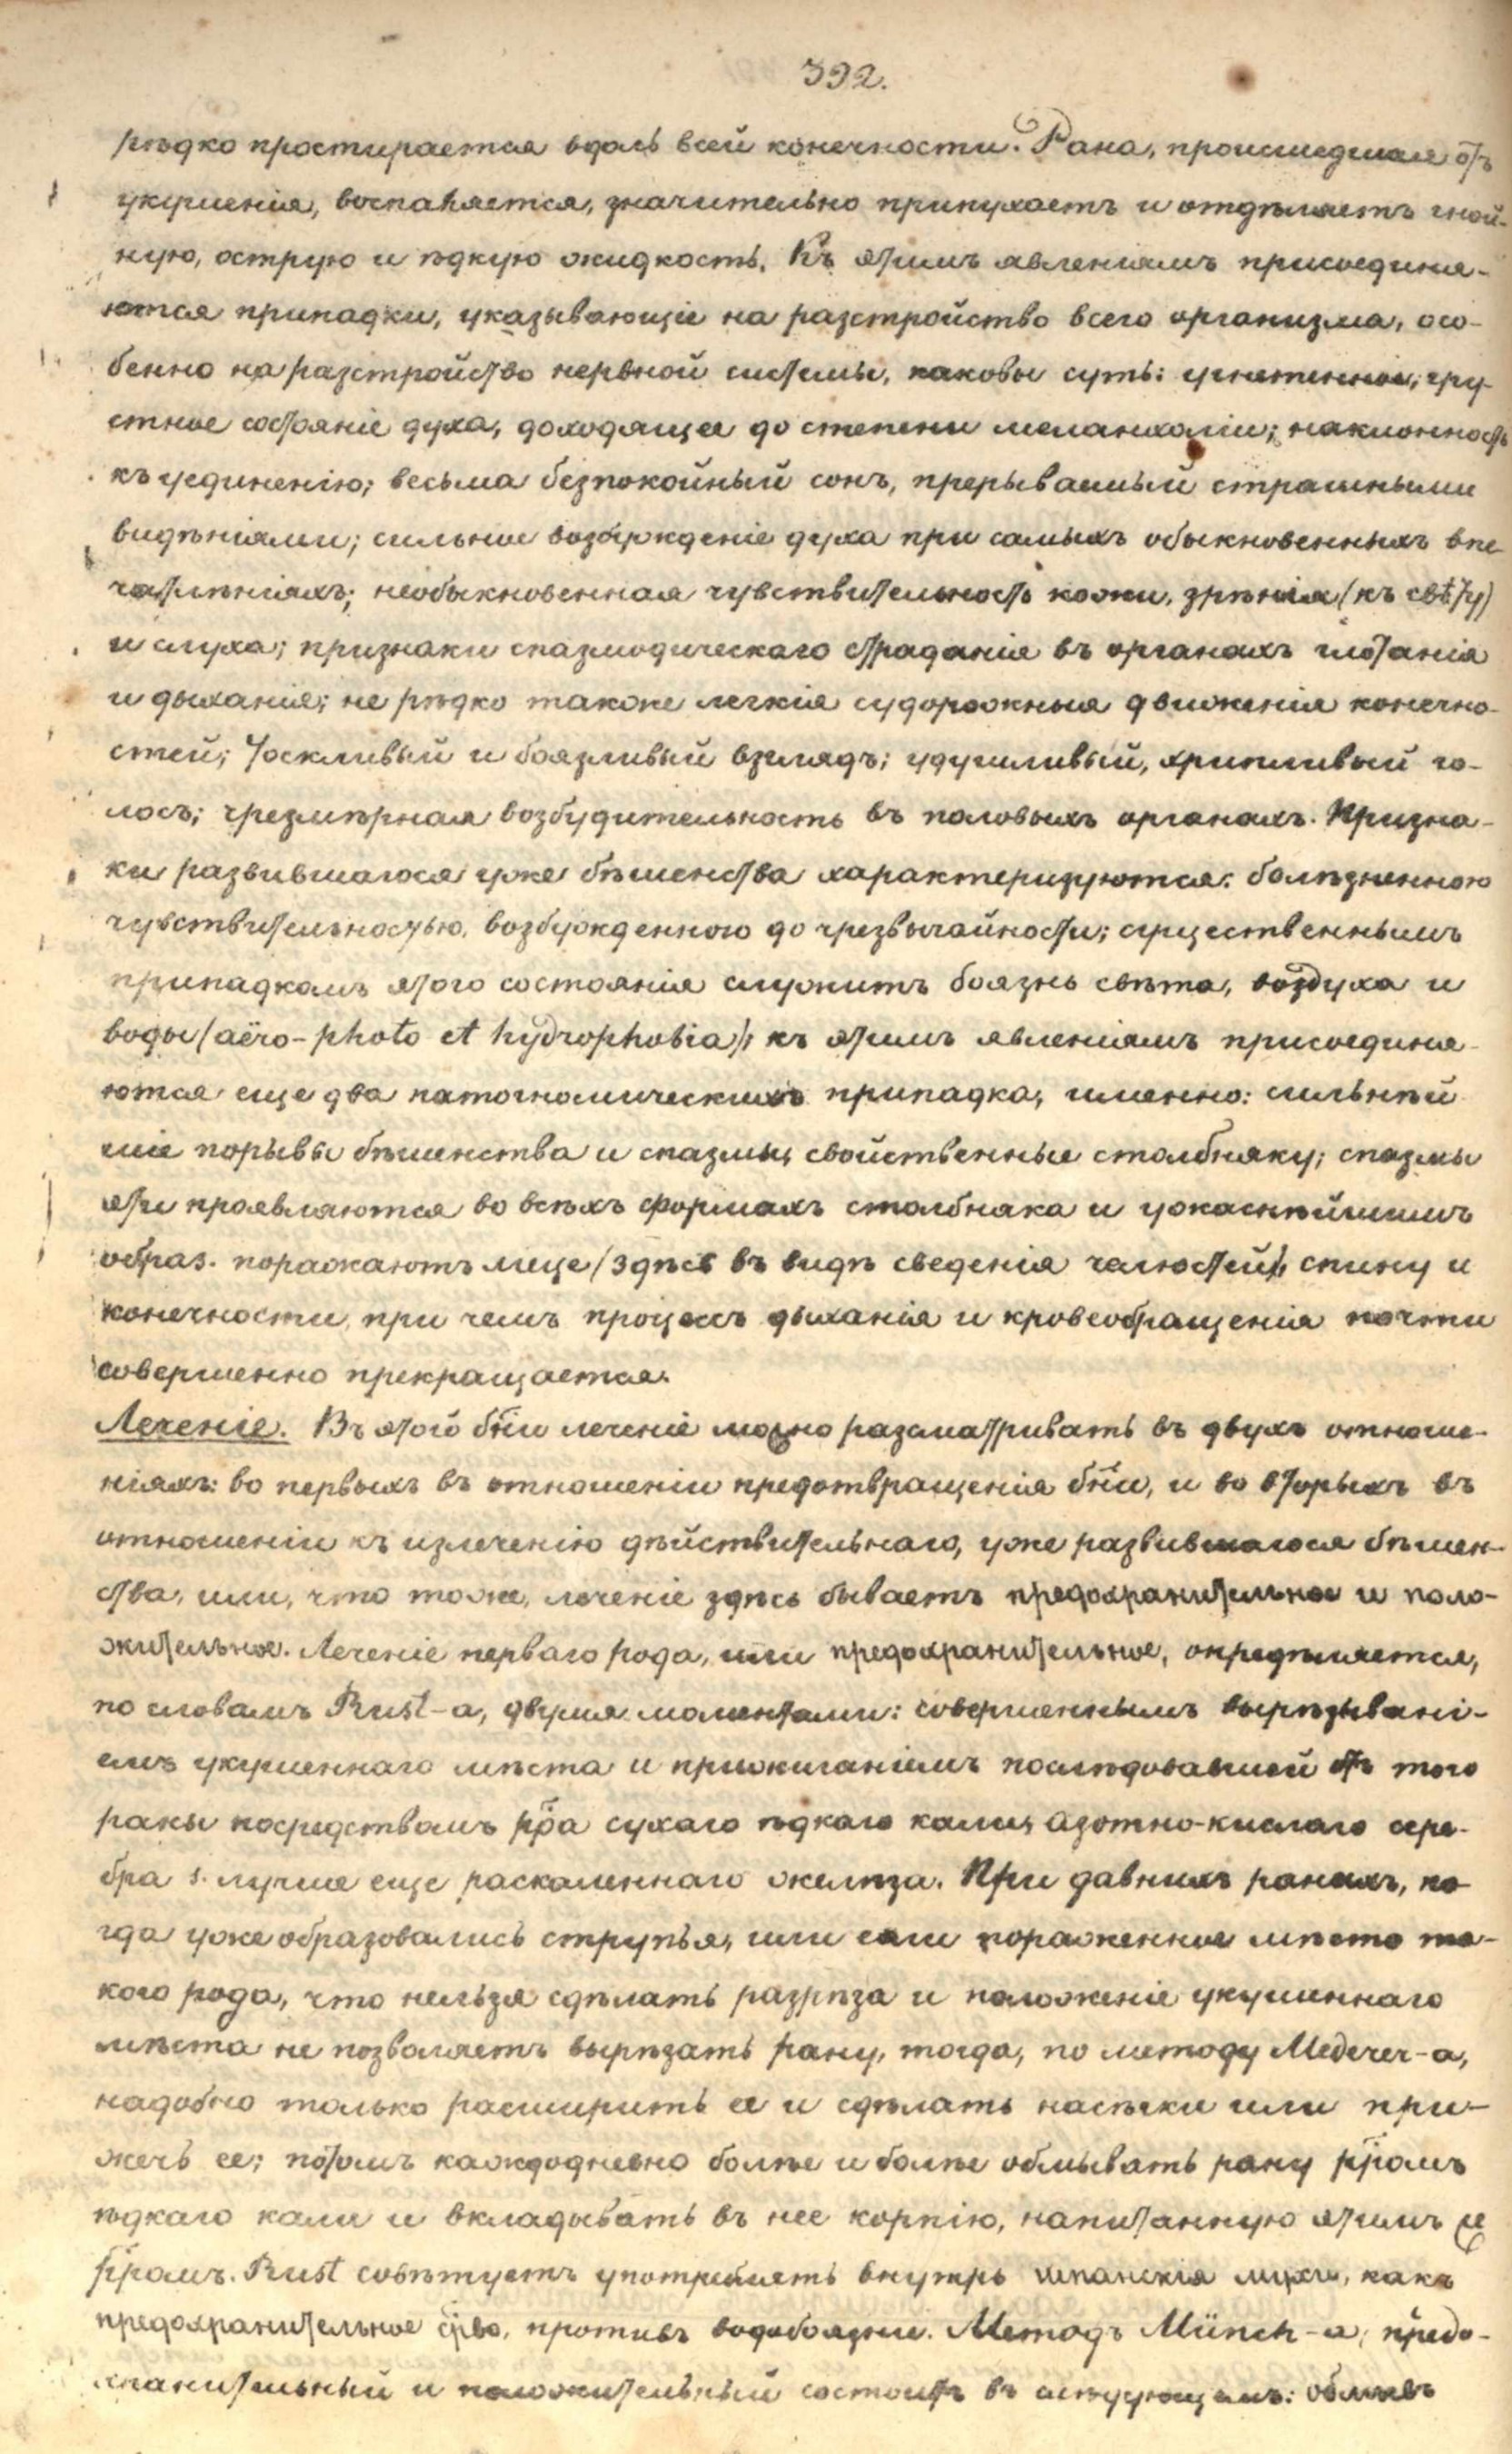 392.
рѣдко простирается вдоль всей конечности. Рана, происшедшая отъ
укушенія, воспаляется, значительно припухаетъ и отдѣляетъ гной-
ную, острую и ѣдкую жидкость. Къ этимъ явленіямъ присоединя-
ются припадки, указывающіе на разстройство всего организма, осо-
бенно на разстройство нервной системы, каковы суть: угнетенное, гру-
стное состояніе духа, доходящее до степени меланхоліи; наклонность
къ уединенію; весьма безпокойный сонъ, прерываемый страшными
видѣніями; сильное возбужденіе духа при самыхъ обыкновенныхъ впе
чатлѣніяхъ; необыкновенная чувствительность кожи, зрѣнія (къ свѣту)
и слуха; признаки спазмодическаго страданія въ органахъ глотанія
и дыханія; не рѣдко также легкія судорожныя движенія конечно-
стей; тоскливый и боязливый взглядъ; удушливый, хрипливый го-
лосъ; чрезмѣрная возбудительность въ половыхъ органахъ. Призна-
ки развившагося уже бѣшенства характеризуются: болѣзненною
чувствительностью, возбужденною до чрезвычайности; существеннымъ
припадкомъ этого состоянія служитъ боязнь свѣта, воздуха и
воды (aëro-photo et hydrophobia); къ этимъ явленіямъ присоединя-
ются еще два патогномическихъ припадка, именно: сильнѣй
шіе порывы бѣшенства и спазмы, свойственные столбняку; спазмы
эти проявляются во всѣхъ формахъ столбняка и ужаснѣйшимъ
образ. поражаютъ лице (здѣсь въ видѣ сведенія челюстей), спину и
конечности, при чемъ процессъ дыханія и кровеобращенія почти
совершенно прекращается.
Леченіе. Въ этой бни леченіе можно разсматривать въ двухъ отноше-
ніяхъ: во первыхъ въ отношеніи предотвращенія бни, и во вторыхъ въ
отношеніи къ излеченію дѣйствительнаго, уже развившагося бѣшен-
ства, или, что тоже, леченіе здѣсь бываетъ предохранительное и поло-
жительное. Леченіе перваго рода, или предохранительное, опредѣляется,
по словамъ Rust-а, двумя моментами: совершеннымъ вырѣзывані-
емъ укушеннаго мѣста и прижиганіемъ послѣдовавшей отъ того
раны посредствомъ рра сухаго ѣдкаго кали, азотно-кислаго сере-
бра s. лучше еще раскаленнаго желѣза. При давнихъ ранахъ, ко
гда уже образовались струпья, или если пораженное мѣсто та-
кого рода, что нельзя сдѣлать разрѣза и положеніе укушеннаго
мѣста не позволяетъ вырѣзать рану, тогда, по методу Mederer-а,
надобно только расширить ее и сдѣлать насѣчки или при-
жечь ее; потомъ каждодневно болѣе и болѣе обмывать рану рромъ
ѣдкаго кали и вкладывать въ нее корпію, напитанную этимъ же
рромъ. Rust совѣтуетъ употреблять внутрь шпанскія мухи, какъ
предохранительное срво, противъ водобоязни. Методъ Münch-а, предо-
хранительный и положительный состоитъ въ слѣдующемъ: обмывъ